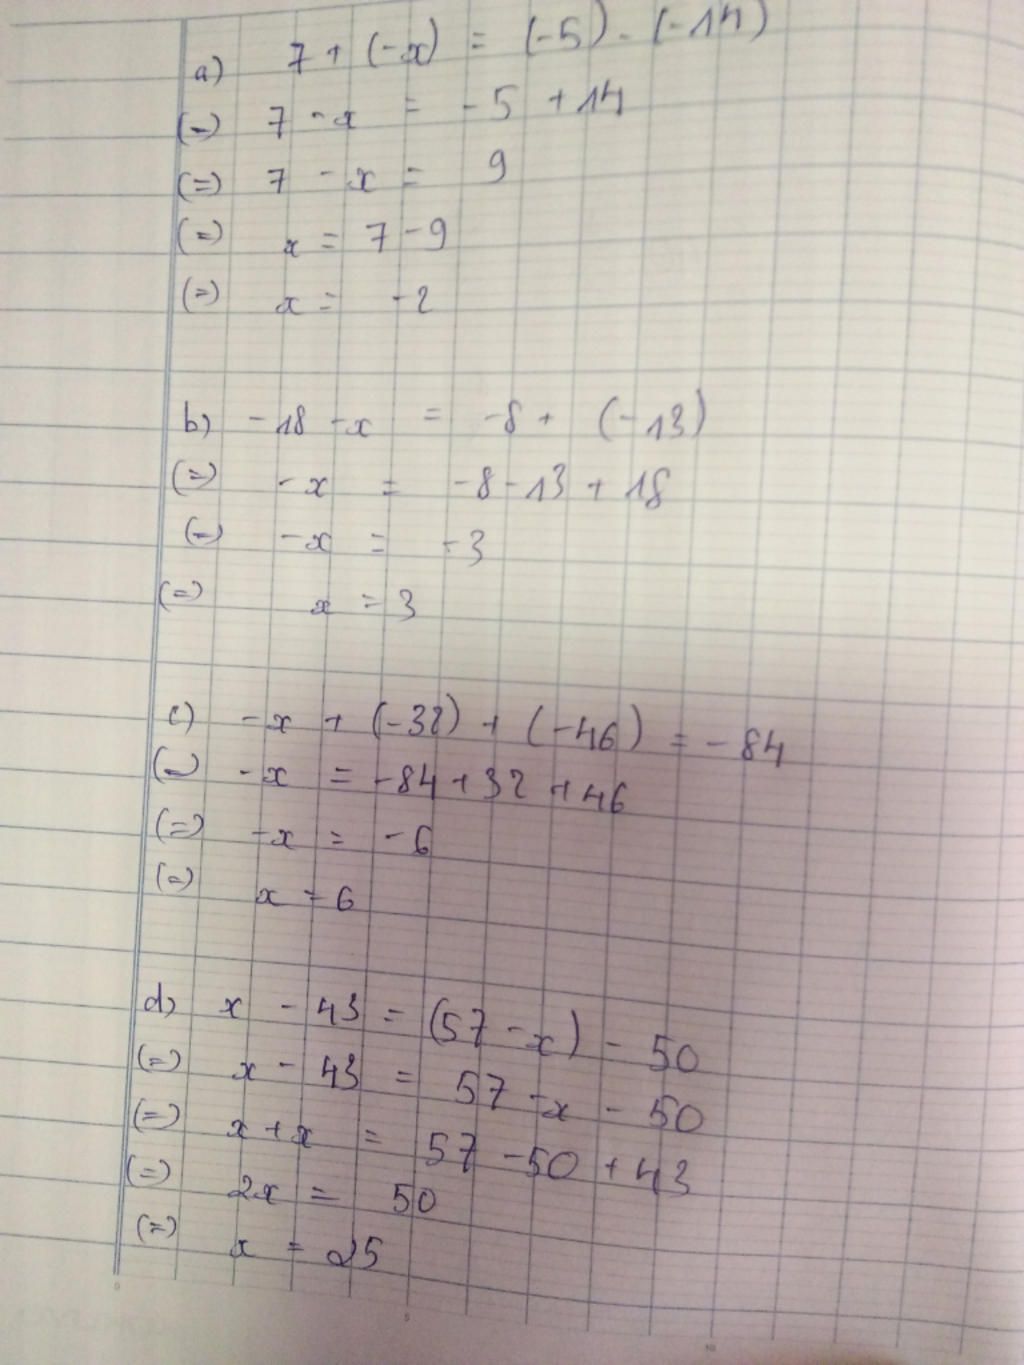 a) 7 + (-x) = (-5) - (-14)
(=) 7 - x = -5 + 14
(=) 7 - x = 9
(=) x = 7 - 9
(=) x = -2
b) -18 - x = -8 + (-13)
(=) -x = -8 - 13 + 18
(=) -x = -3
(=) x = 3
c) -x + (-32) + (-46) = -84
(=) -x = -84 + 32 + 46
(=) -x = -6
(=) x = 6
d) x - 43 = (57 - x) - 50
(=) x - 43 = 57 - x - 50
(=) x + x = 57 - 50 + 43
(=) 2x = 50
(=) x = 25